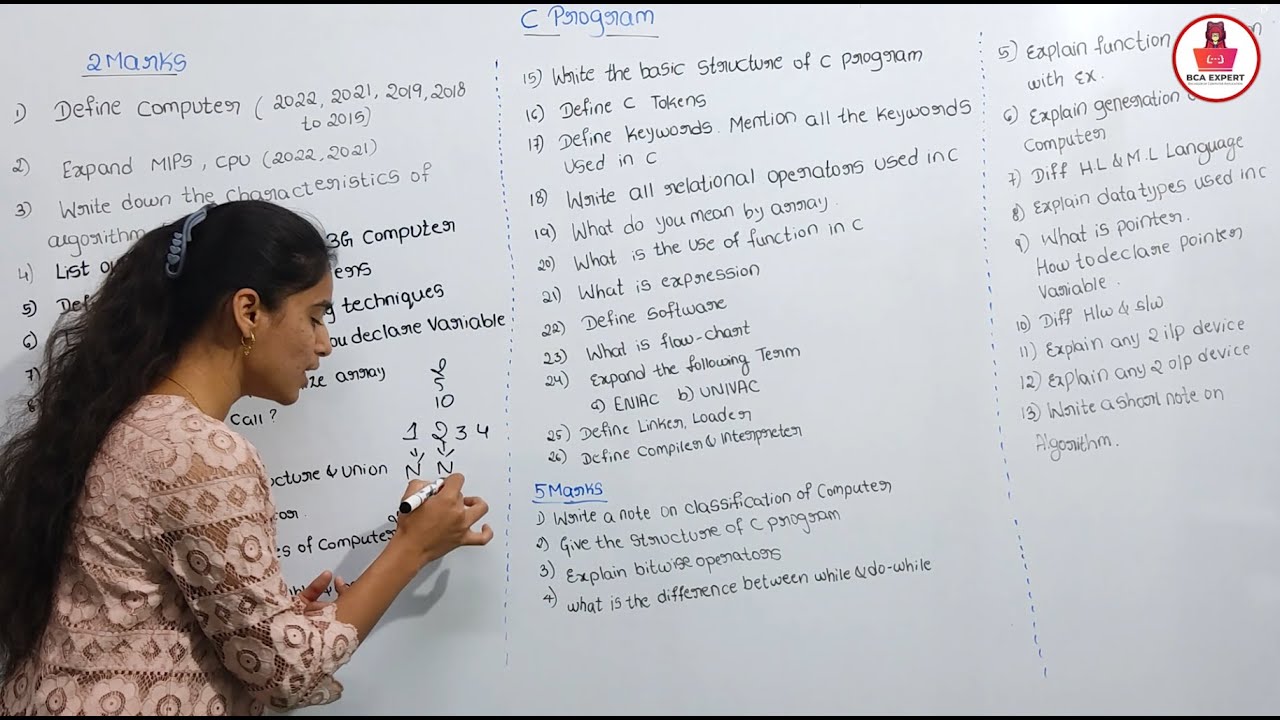 C Program
2 Marks
1) Define Computer (2022, 2021, 2019, 2018
to 2015)
2) Expand MIPS, CPU (2022, 2021)
3) Write down the characteristics of
algorithm
4) List 3G Computer
5) ers
6) techniques
7) ou declare Variable
8) array
Call?
ructure & Union
s of Computer
&
5
10
1 2 3 4
N N
15) Write the basic structure of C program
16) Define C Tokens
17) Define keywords. Mention all the keywords
Used in C
18) Write all relational operators used in C
19) What do you mean by array.
20) What is the use of function in C
21) What is expression
22) Define Software
23) What is flow-chart
24) Expand the following Term
a) ENIAC b) UNIVAC
25) Define Linker, Loader
26) Define Compiler & Interpreter
5 Marks
1) Write a note on classification of Computer
2) Give the structure of C program
3) Explain bitwise operators
4) what is the difference between while & do-while
5) Explain function
with Ex.
6) Explain generation
Computer
7) Diff H.L & M.L Language
8) Explain data types used in C
9) What is pointer.
How to declare pointer
Variable.
10) Diff H/w & S/w
11) Explain any 2 i/p device
12) Explain any 2 o/p device
13) Write a short note on
Algorithm.
BCA EXPERT